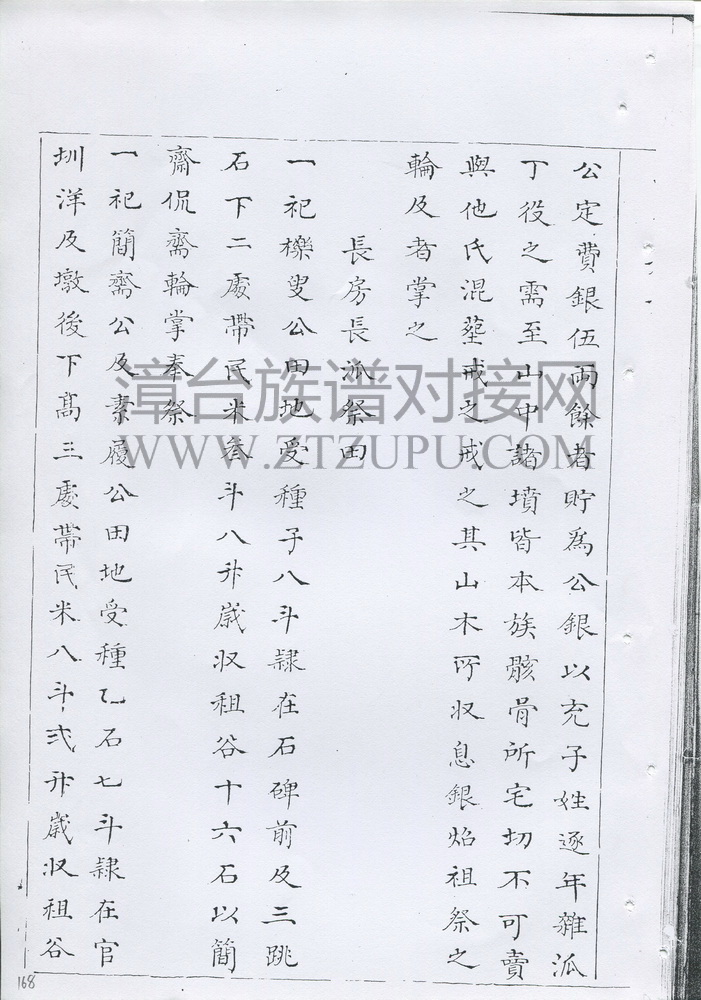 公定費銀伍兩餘者貯為公銀以充子姓逐年雜派
丁役之需至山中諸墳皆本族骸骨所宅切不可賣
與他氏混塟戒之戒之其山木所収息銀焰祖祭之
輪及者掌之
長房長派祭田
一祀櫟叟公田地受種子八斗隷在石碑前及三跳
石下二處帶民米叁斗八升歲収租谷十六石以簡
齋侃齋輪掌奉祭
一祀簡齋公及素履公田地受種乙石七斗隷在官
圳洋及墩後下高三處帶民米八斗弍升歲収租谷
漳台族谱对接网
WWW.ZTZUPU.COM
168